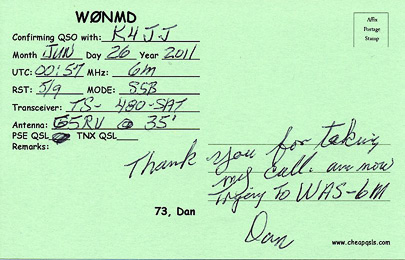 WØNMD
Confirming QSO with: K4JJ
Month JUN Day 26 Year 2011
UTC: 00:57 MHz: 6m
RST: 5/9 MODE: SSB
Transceiver: TS-480-SAT
Antenna: G5RV @ 35'
PSE QSL TNX QSL
Remarks:
Thank you for taking
my call. are now
trying to WAS-6M
Dan
73, Dan
Affix
Postage
Stamp
www.cheapqsls.com